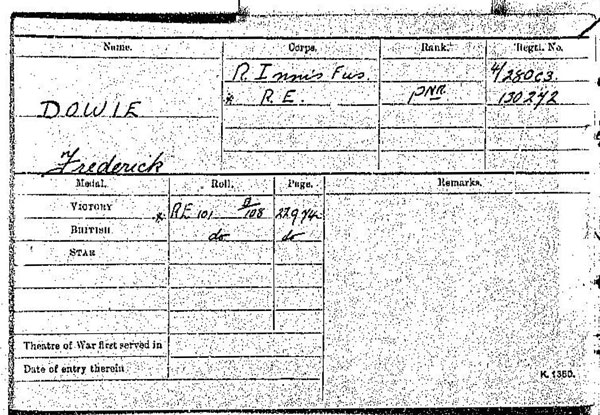 Name. Corps. Rank. Regtl. No.
R. Innis Fus. 4/28063
DOWIE * R.E. PNR 130272
Frederick
Medal. Roll. Page. Remarks.
VICTORY * RE 101 B/108 22974
BRITISH do do
STAR
Theatre of War first served in
Date of entry therein
K. 1380.